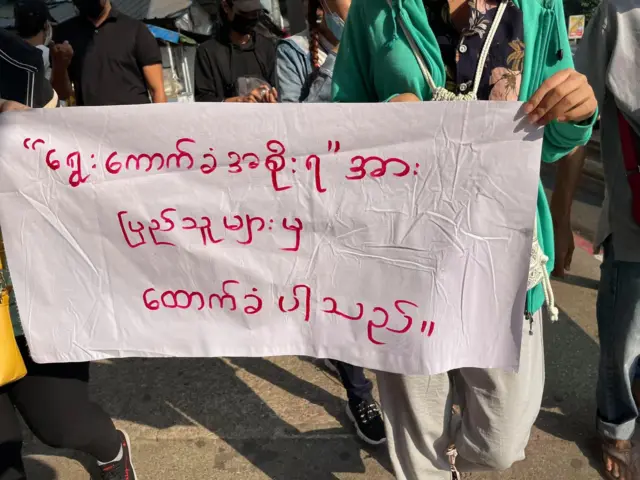 “ရွေးကောက်ခံအစိုးရ” အား
ပြည်သူများမှ
ထောက်ခံပါသည်”